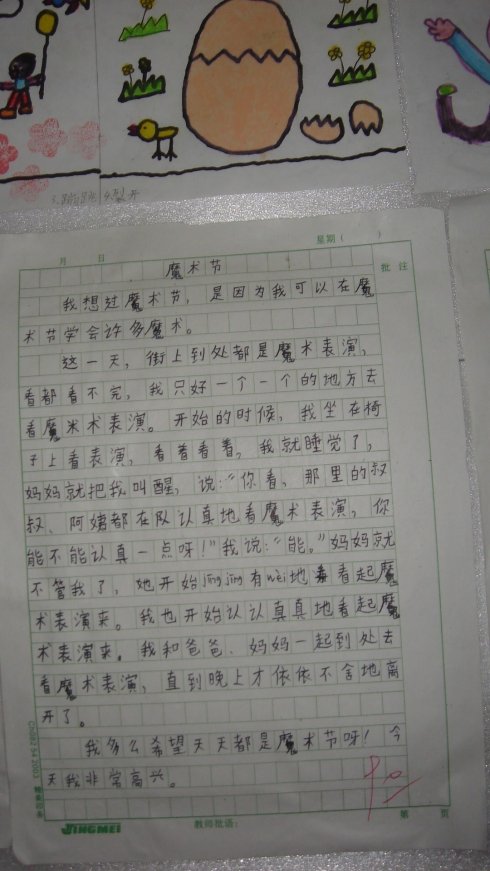 3.蹦跳
月 日
星期( )
批注
魔术节
我想过魔术节，是因为我可以在魔
术节学会许多魔术。
这一天，街上到处都是魔术表演，
看都看不完，我只好一个一个的地方去
看魔术表演。开始的时候，我坐在椅
子上看表演，看着看着，我就睡觉了，
妈妈就把我叫醒，说：“你看，那里的叔
叔、阿姨都在队认真地看魔术表演，你
能不能认真一点呀！”我说：“能。”妈妈就
不管我了，她开始jīng jing有wèi地看起魔
术表演来。我也开始认认真真地看起魔
术表演来。我和爸爸、妈妈一起到处去
看魔术表演，直到晚上才依依不舍地离
开了。
我多么希望天天都是魔术节呀！今
天我非常高兴。
JINGMEI
教师批语：
第 页